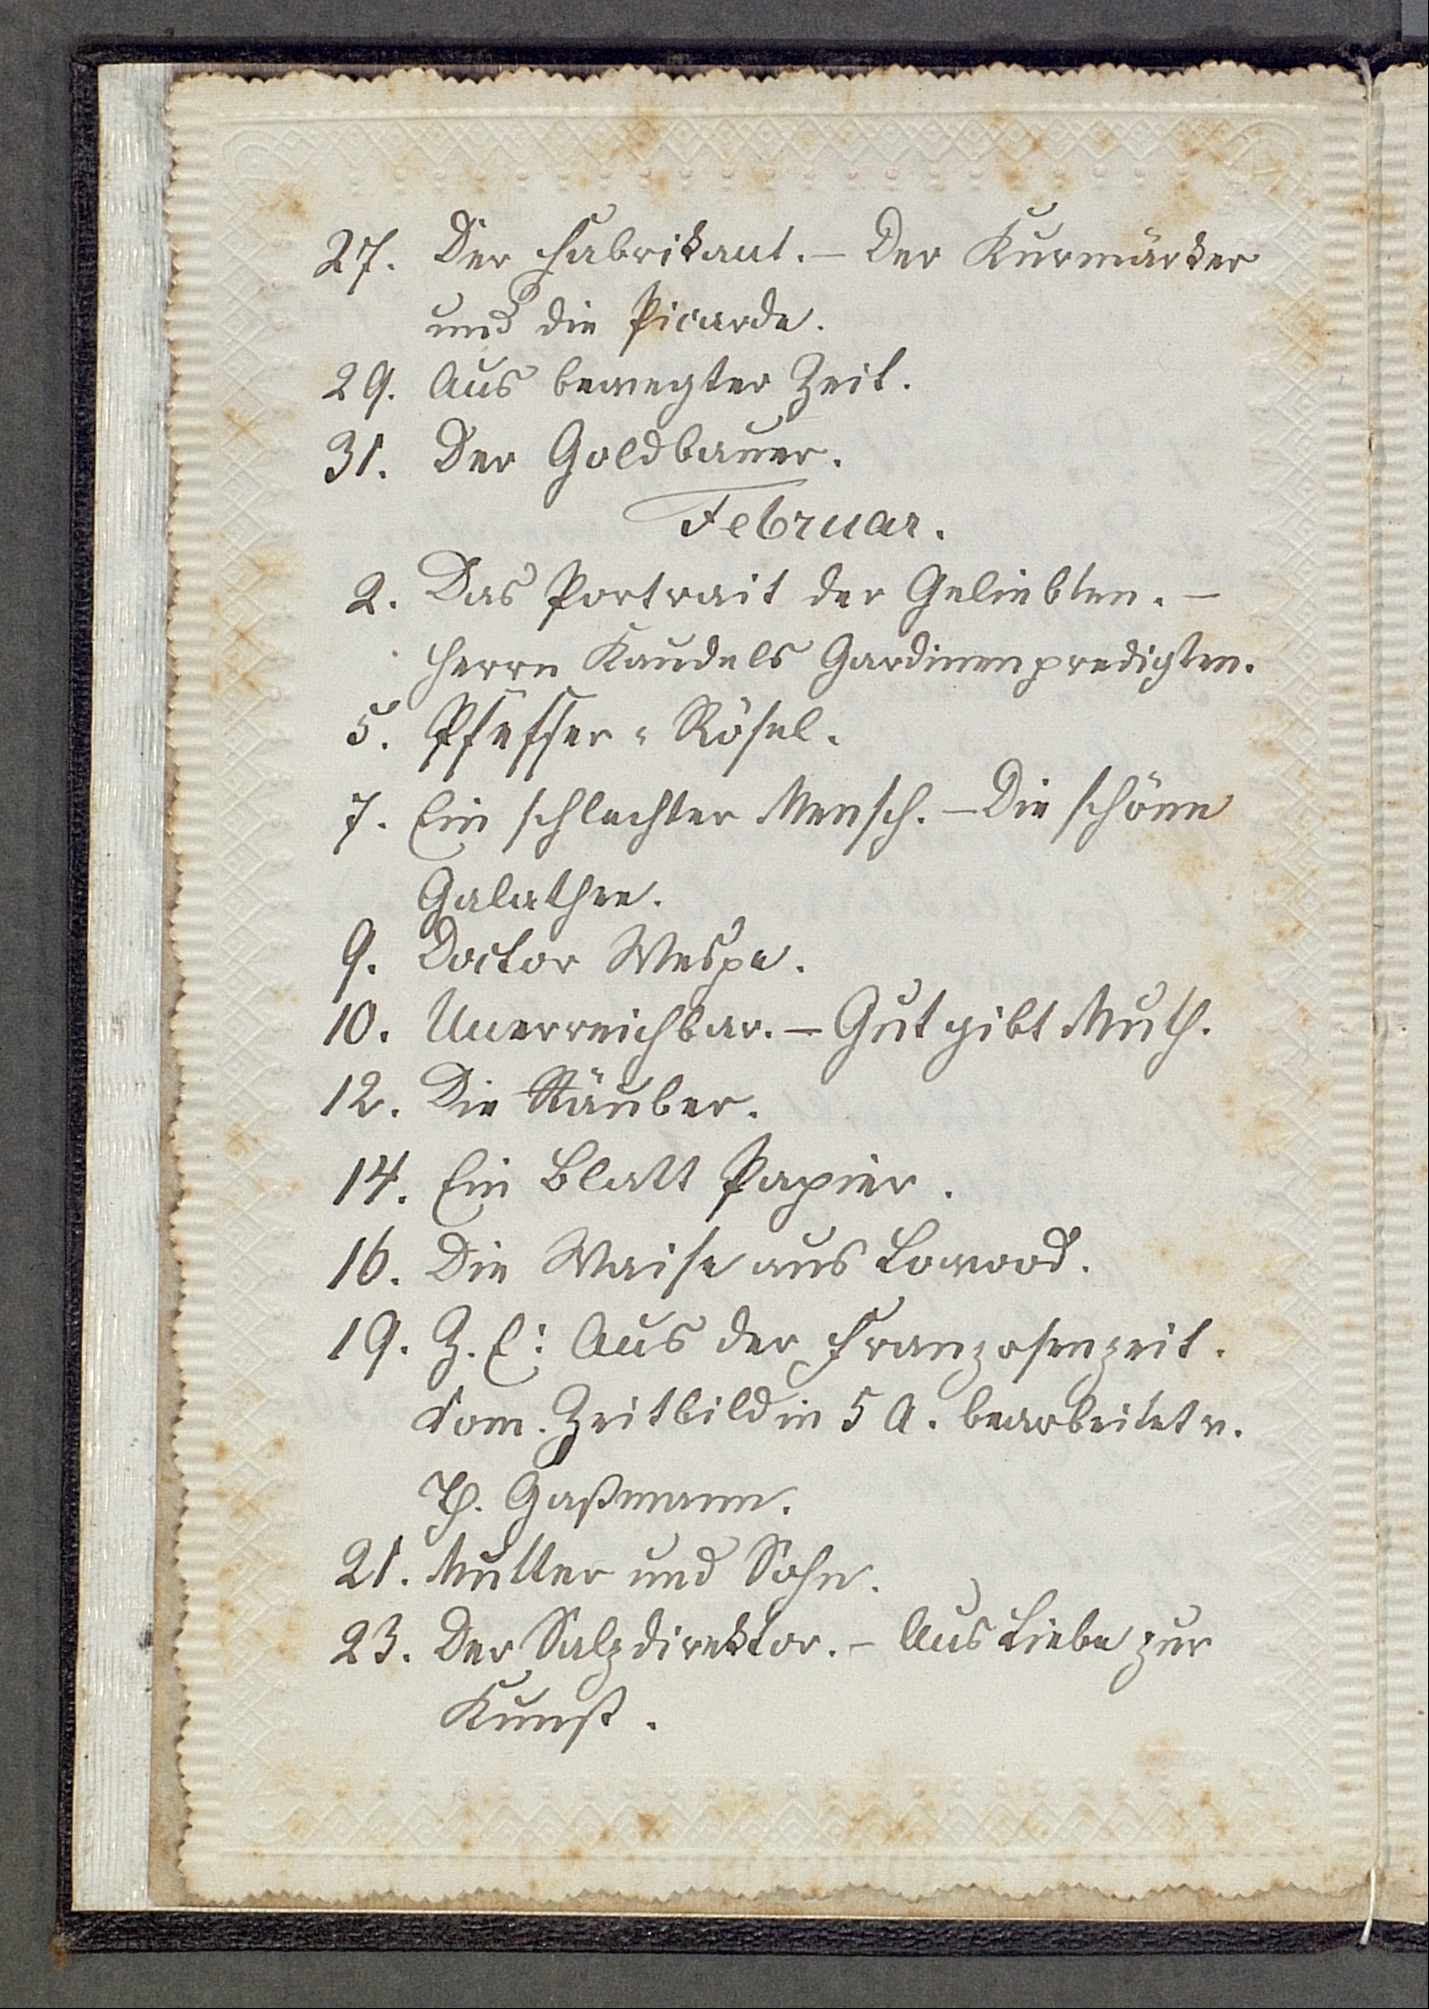 27. Der Fabrikant. – Der Kurmärker
und die Picarde.
29. Aus bewegter Zeit.
31. Der Goldbauer.
Februar.
2. Das Portrait der Geliebten. –
Herrn Kaudels Gardinenpredigten.
5. Pfeffer-Rösel.
7. Ein schlechter Mensch. – Die schöne
Galathee.
9. Doctor Wespe.
10. Unerreichbar. – Gut gibt Muth.
12. Die Räuber.
14. Ein Blatt Papier.
16. Die Waise aus Lowood.
19. Z. E: Aus der Franzosenzeit.
Kom. Zeitbild in 5 A. bearbeitet v.
Th. Gaßmann.
21. Mutter und Sohn.
23. Der Salzdirektor. – Aus Liebe zur
Kunst.